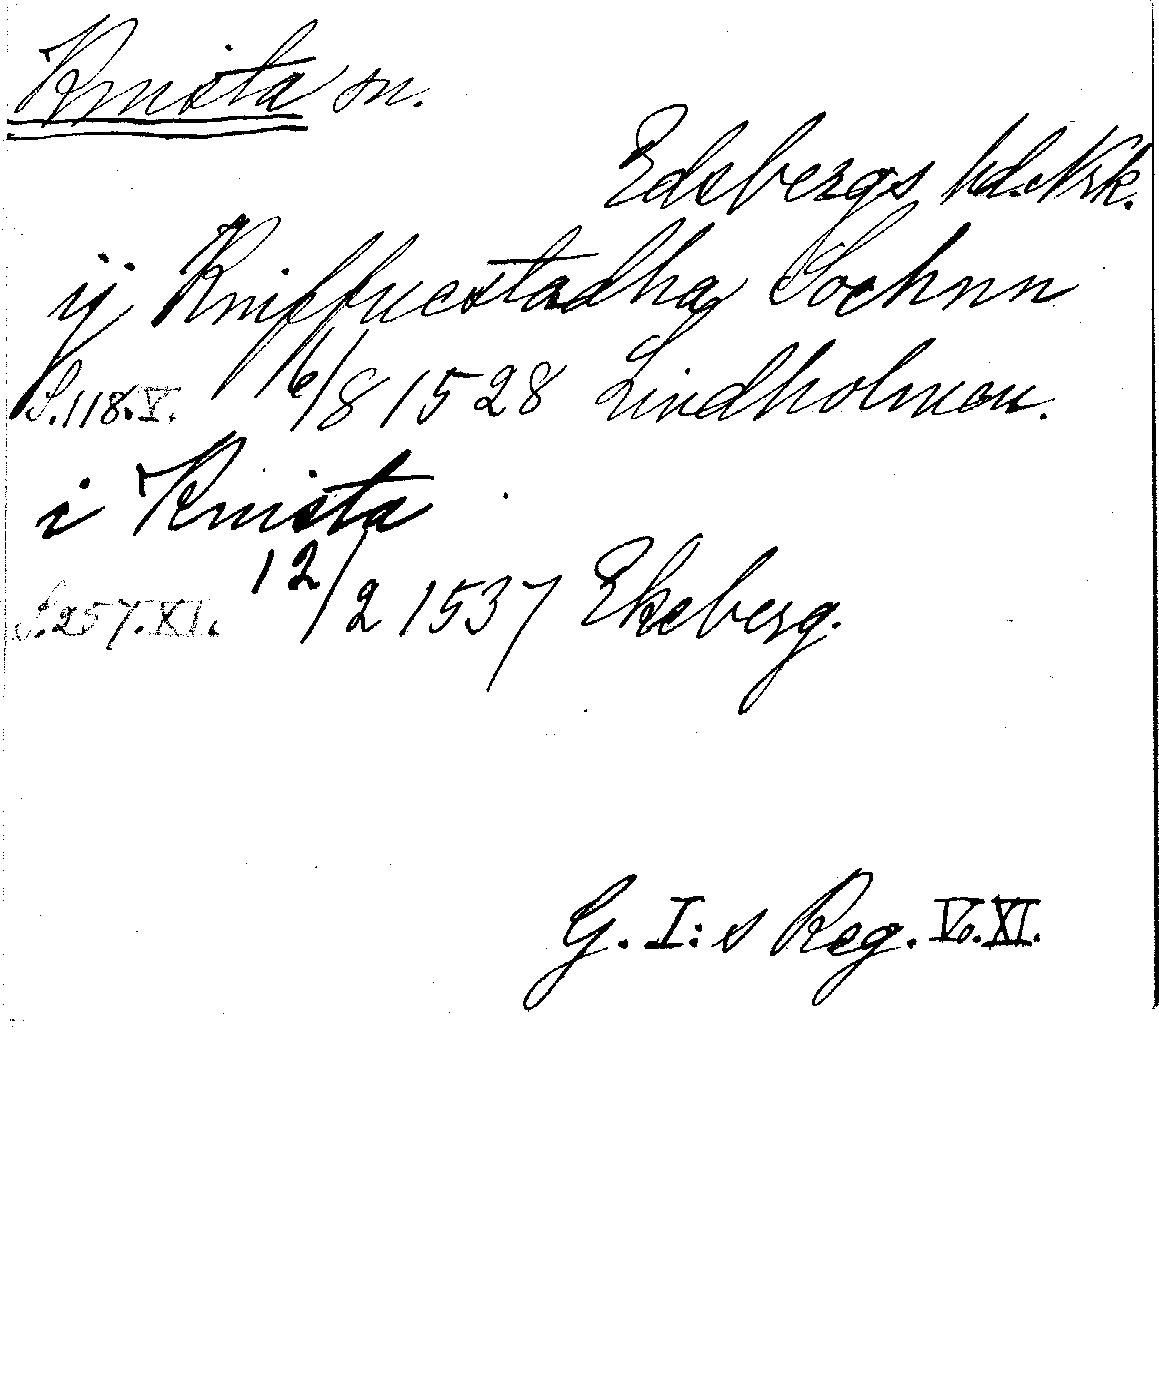 Knista sn.
Edsbergs hd. Nrk.
ij Kniffuestadha Sochnn
S. 118. V. 16/8 1528 Lindholmen.
i Knista
S. 257. XI. 12/2 1537 Ekeberg.
G. I:s Reg. V. XI.